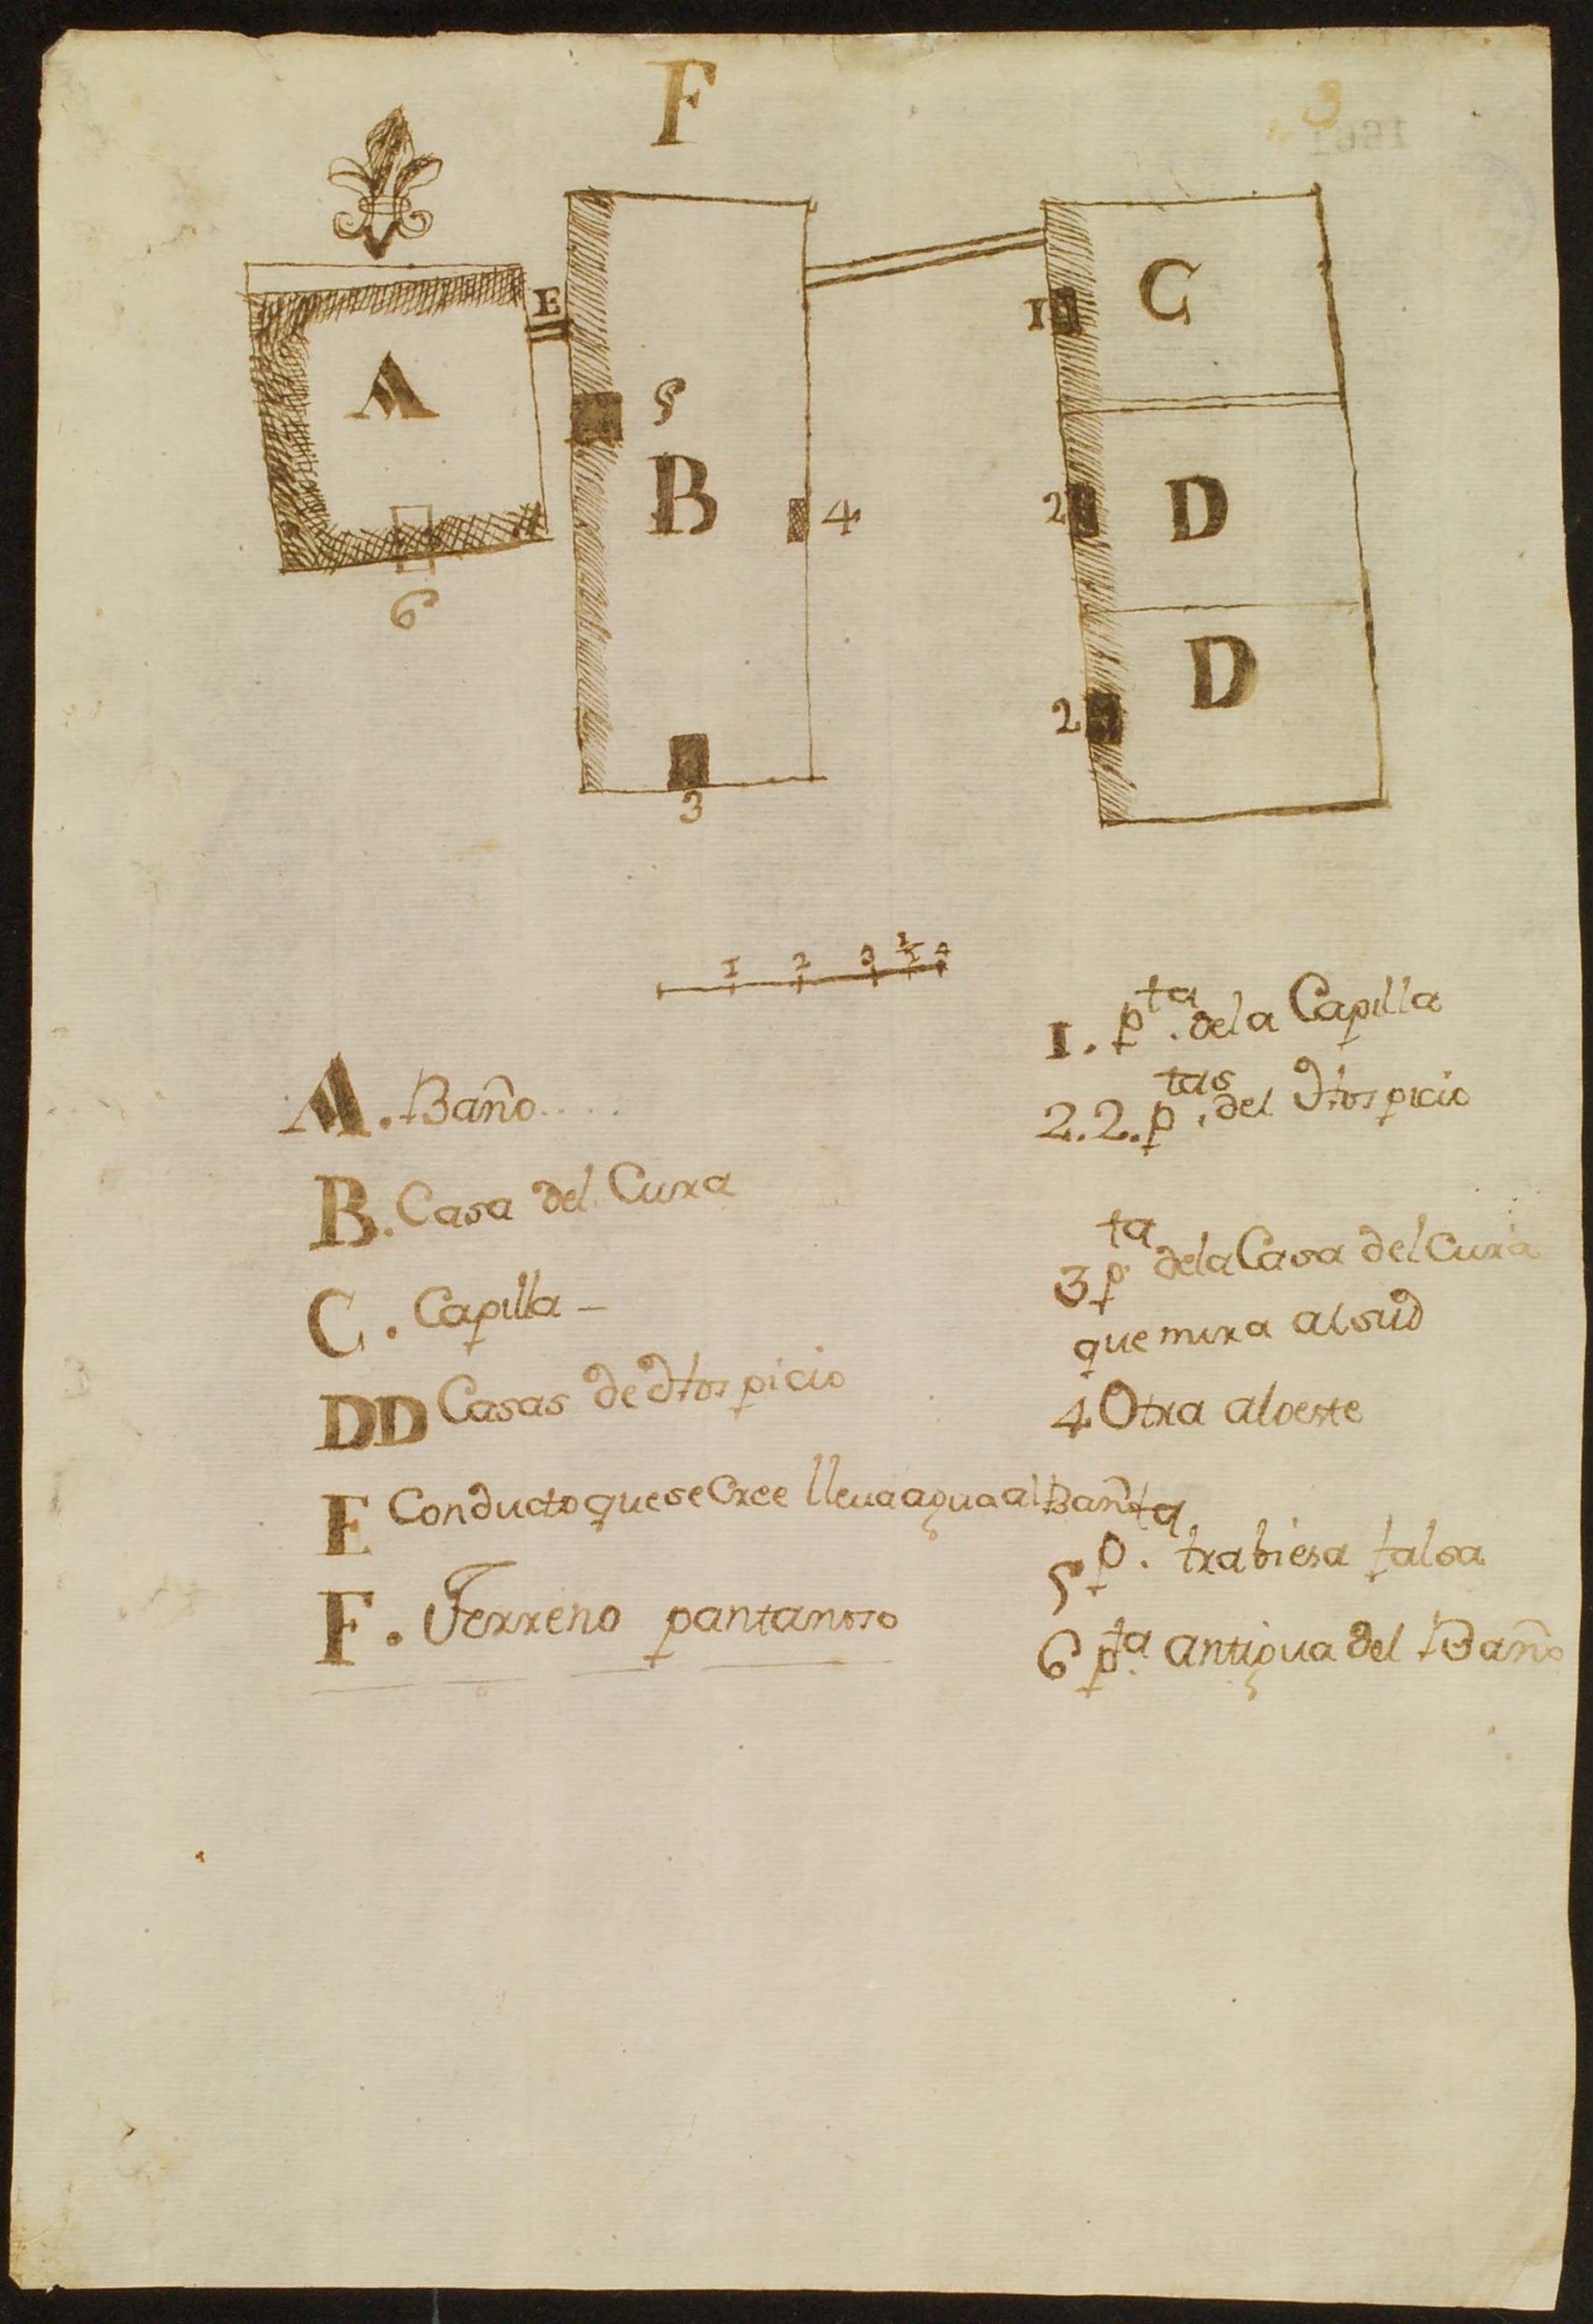 F
3
E
A
5
B
4
6
3
1
C
2
D
2
D
1 2 3 1/2 4
A. Baño....
B. Casa del Cura
C. Capilla –
DD Casas de Hospicio
E Conducto que se Cree lleva agua al Baño
F. Terreno pantanoso
1. pta. de la Capilla
2.2. ptas. del Hospicio
3 pta. de la Casa del Cura
que mira al sud
4 Otra al oeste
5 pta. trabiesa falsa
6 pta. antigua del Baño